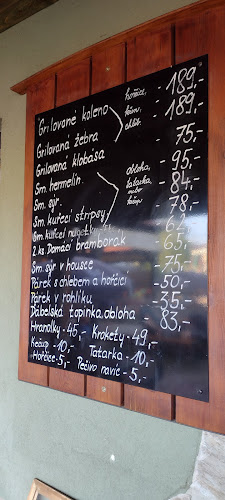 Grilované koleno hořčice, -189,-
Grilovaná žebra křen, -189,-
Grilovaná klobása chléb. - 75,-
Sm. hermelín - 95,-
Sm. sýr. obloha, - 84,-
Sm. kuřecí stripsy tatarka, - 78,-
Sm. kuřecí nugetky
2 ks. Domácí bramborák - 65,-
Sm. sýr v housce - 75,-
Párek s chlebem a hořčicí - 50,-
Párek v rohlíku - 35,-
Ďábelská topinka, obloha - 83,-
Hranolky - 45,- Krokety - 49,-
kečup - 10,- Tatarka - 10,-
Hořčice - 5,- Pečivo navíc - 5,-